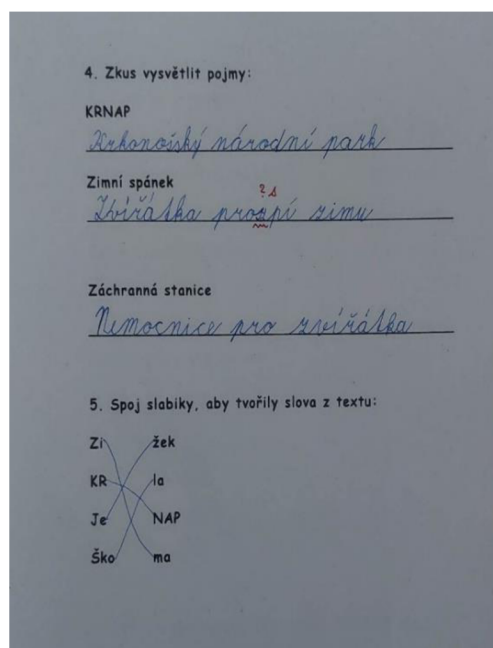 4. Zkus vysvětlit pojmy:
KRNAP
Krkonošský národní park
Zimní spánek
? s
Zvířátka prozpí zimu
Záchranná stanice
Nemocnice pro zvířátka
5. Spoj slabiky, aby tvořily slova z textu:
Zi žek
KR la
Je NAP
Ško ma